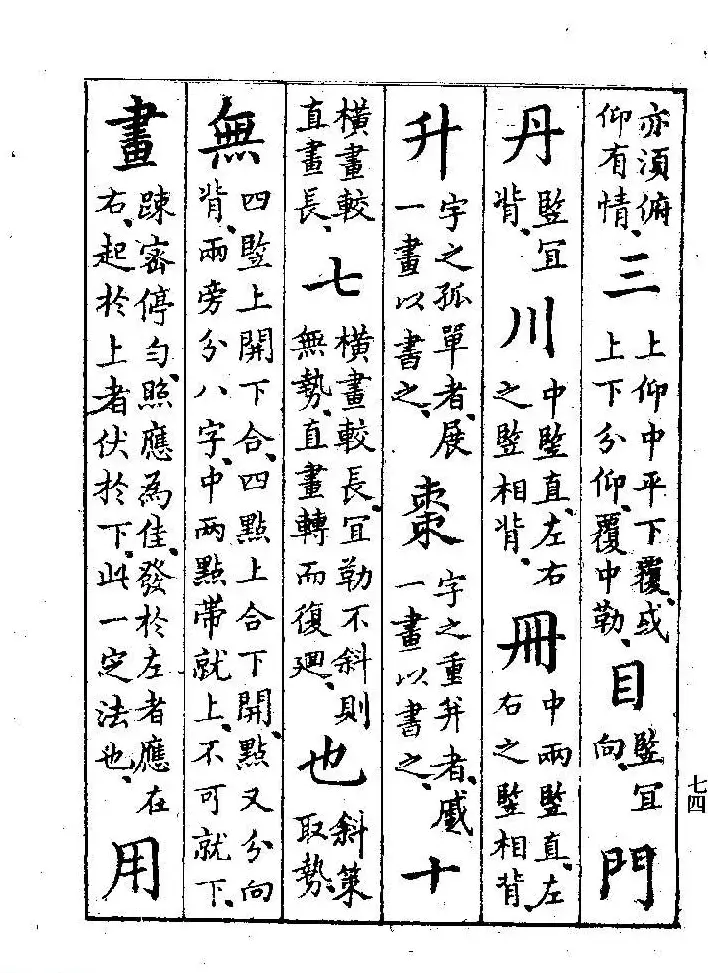 亦須俯
仰有情、
三
上仰中平下覆、或
上下分仰、覆中勒、
目
竪宜
向、
門
丹
竪宜
背、
川
中竪直、左右
之竪相背、
冊
中兩竪直、左
右之竪相背、
升
字之孤單者、展
一畫以書之、
棗
字之重并者、戚
一畫以書之、
十
橫畫較
直畫長、
七
橫畫較長、宜勒不斜則
無勢、直畫轉而復廻、
也
斜策
取勢、
無
四竪上開下合、四點上合下開、點又分向
背、兩旁分八字、中兩點帶就上、不可就下、
畫
踈密停勻、照應為佳、發於左者應在
右、起於上者伏於下、此一定法也、
用
七四